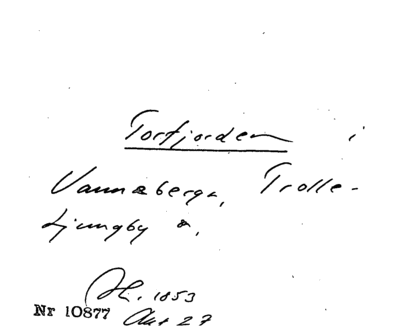 Torfjorden i
Vannaberga, Trolle-
Ljungby s,
1853
Nr 10877 Akt 27